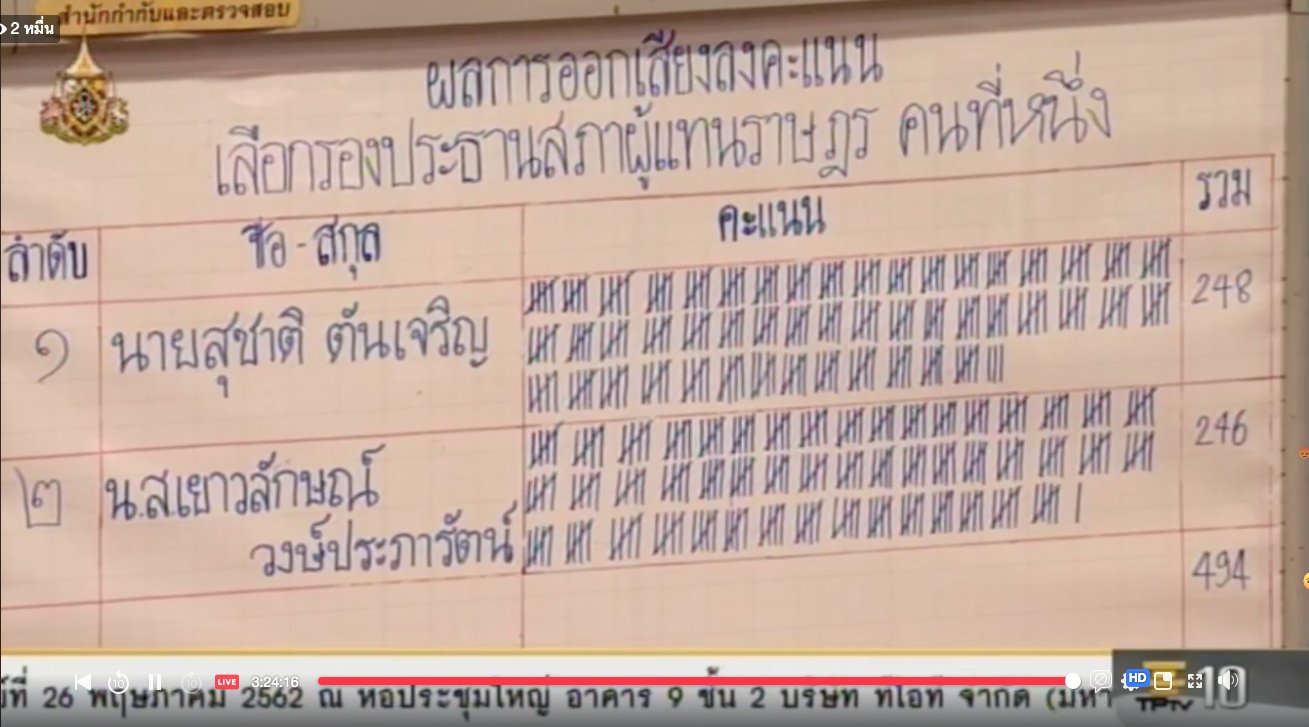 สำนักกำกับและตรวจสอบ
2 หมื่น
ผลการออกเสียงลงคะแนน
เลือกรองประธานสภาผู้แทนราษฎร คนที่หนึ่ง
ลำดับ ชื่อ - สกุล คะแนน รวม
๑ นายสุชาติ ตันเจริญ 248
๒ น.ส.เยาวลักษณ์ 246
วงษ์ประภารัตน์
494
LIVE 3:24:16 HD
ที่ 26 พฤษภาคม 2562 ณ หอประชุมใหญ่ อาคาร 9 ชั้น 2 บริษัท ทีโอที จำกัด (มหา
TPTV 10